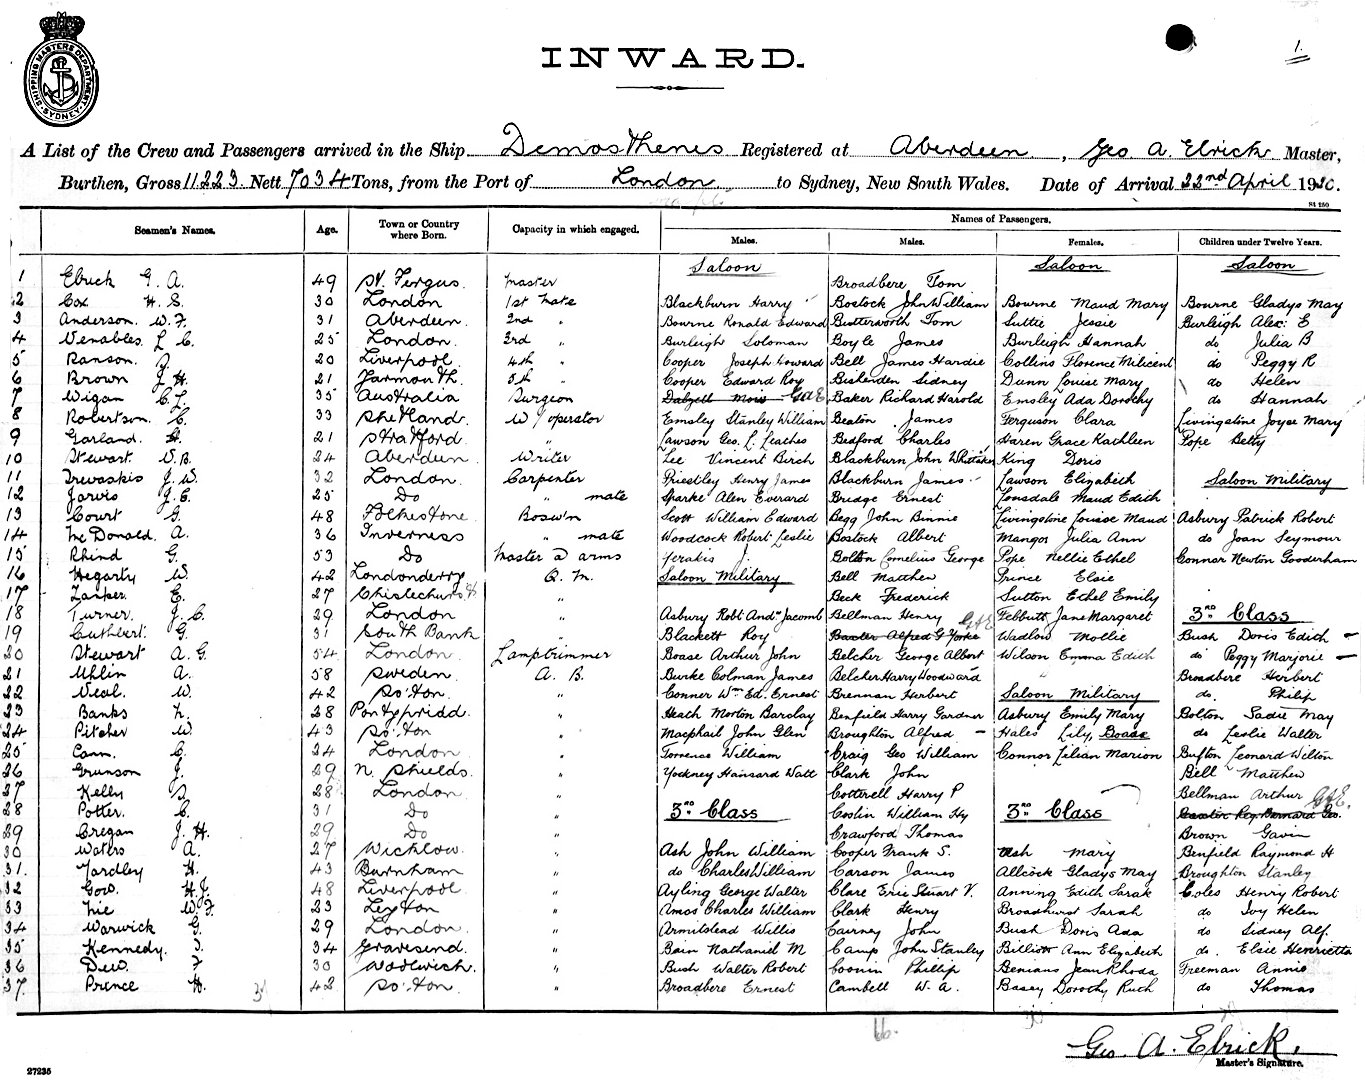 SHIPPING MASTERS DEPARTMENT SYDNEY
INWARD.
1.
A List of the Crew and Passengers arrived in the Ship Demosthenes Registered at Aberdeen, Geo A. Elrick Master,
Burthen, Gross 11223 Nett 7034 Tons, from the Port of London to Sydney, New South Wales. Date of Arrival 22nd April 1920.
St 150
Names of Passengers.
Seamen's Names. Age. Town or Country where Born. Capacity in which engaged. Males. Males. Females. Children under Twelve Years.
Saloon Saloon Saloon
1 Elrick G. A. 49 St. Fergus. Master Broadbere Tom
2 Cox H. S. 30 London 1st Mate Blackburn Harry Bostock John William Bourne Maud Mary Bourne Gladys May
3 Anderson. W. F. 31 Aberdeen. 2nd " Bourne Ronald Edward Butterworth Tom Suttie Jessie Burleigh Alec. E
4 Venables. L. C. 25 London. 3rd " Burleigh Soloman Boyle James Burleigh Hannah do Julia B
5 Ranson. J. 20 Liverpool. 4th " Cooper Joseph Howard Bell James Hardie Collins Florence Milicent do Peggy R
6 Brown J. H. 21 Yarmouth. 5th " Cooper Edward Roy Bishenden Sidney Dunn Louise Mary do Helen
7 Wigan C. L. 35 Australia Surgeon Dalzell Mois GAE Baker Richard Harold Emsley Ada Dorothy do Hannah
8 Robertson. C. 33 Shetland. W/operator Emsley Stanley William Beaton James Ferguson Clara Livingstone Joyce Mary
9 Garland. H. 21 Stratford " Lawson Geo. L. Leaches Bedford Charles Haren Grace Kathleen Pope Betty
10 Stewart. W. B. 24 Aberdeen Writer Lee Vincent Birch Blackburn John Whittaker King Doris
11 Trevaskis J. W. 32 London. Carpenter Priestley Henry James Blackburn James Lawson Elizabeth Saloon Military
12 Jarvis J. C. 25 Do " mate Sparke Alen Everard Bridge Ernest Lonsdale Maud Edith
13 Court G. 48 Folkestone Bosw'n Scott William Edward Begg John Binnie Livingstone Louise Maud Asbury Patrick Robert
14 McDonald. A. 36 Inverness " mate Woodcock Robert Leslie Bostock Albert Mangos Julia Ann do Joan Seymour
15 Rhind G. 53 Do Master D arms Yerakis J. Bolton Cornelius George Pope Nellie Ethel Connor Newton Gooderham
16 Hegarty W. 42 Londonderry Q. M. Saloon Military Bell Matthew Prince Elsie
17 E. 27 Chislehurst " Beck Frederick Sutton Ethel Emily
18 Turner. J. C. 29 London " Asbury Robt Andw Jacomb Bellman Henry Tebbutt Jane Margaret 3rd Class
19 Cuthbert. G. 31 South Bank " Blackett Roy Baxter Alfred G Yorke GAE Wadlow Mollie Bush Doris Edith
20 Stewart A. G. 54 London. Lamptrimmer Boase Arthur John Belcher George Albert Wilson Emma Edith do Peggy Marjorie
21 Uhlin A. 58 Sweden A. B. Burke Colman James Belcher Harry Woodward Broadbere Herbert
22 Veal. W. 42 So'ton. " Conner Wm Ed. Ernest Brennan Herbert Saloon Military do. Philip
23 Banks L. 28 Pontypridd. " Heath Morton Barclay Benfield Harry Gardner Asbury Emily Mary Bolton Sadie May
24 Pitcher W. 43 So'ton " Macphail John Glen Broughton Alfred Hales Lily, Boase do Leslie Walter
25 Cann. G. 24 London " Torrence William Craig Geo William Connor Lilian Marion Bufton Leonard Wilton
26 Grunson J. 29 N. Shields. " Yockney Hansard Watt Clark John Bell Matthew
27 Kelly 28 London " Cotterell Harry P Bellman Arthur GAE.
28 Potter. C. 31 Do " 3rd Class Coslin William Hy 3rd Class Baxter Reg. Bernard Geo.
29 Cregan J. H. 29 Do " Crawford Thomas Brown Gavin
30 Waters A. 27 Wicklow. " Ash John William Cooper Frank S. Ash Mary Benfield Raymond H
31. Yardley H. 43 Burnham " do Charles William Carson James Allcock Gladys May Broughton Stanley
32 Gow. H. J. 48 Liverpool " Ayling George Walter Clare Eric Stuart V. Anning Edith Sarah Coles Henry Robert
33 W. F. 23 Leyton " Amos Charles William Clark Henry Broadhurst Sarah do Ivy Helen
34 Warwick G. 29 London. " Armitstead Willis Cairney John Bush Doris Ada do Sidney Alf.
35 Kennedy. 34 Gravesend. " Bain Nathaniel M Camp John Stanley Billiott Ann Elizabeth do. Elsie Henrietta
36 Dew. 30 Woolwich. " Bush Walter Robert Coonin Phillip Benians Jean Rhoda Freeman Annie
37. Prince H. 42 So'ton. " Broadbere Ernest Cambell W. A. Basey Dorothy Ruth do Thomas
Geo. A. Elrick.
Master's Signature.
27235